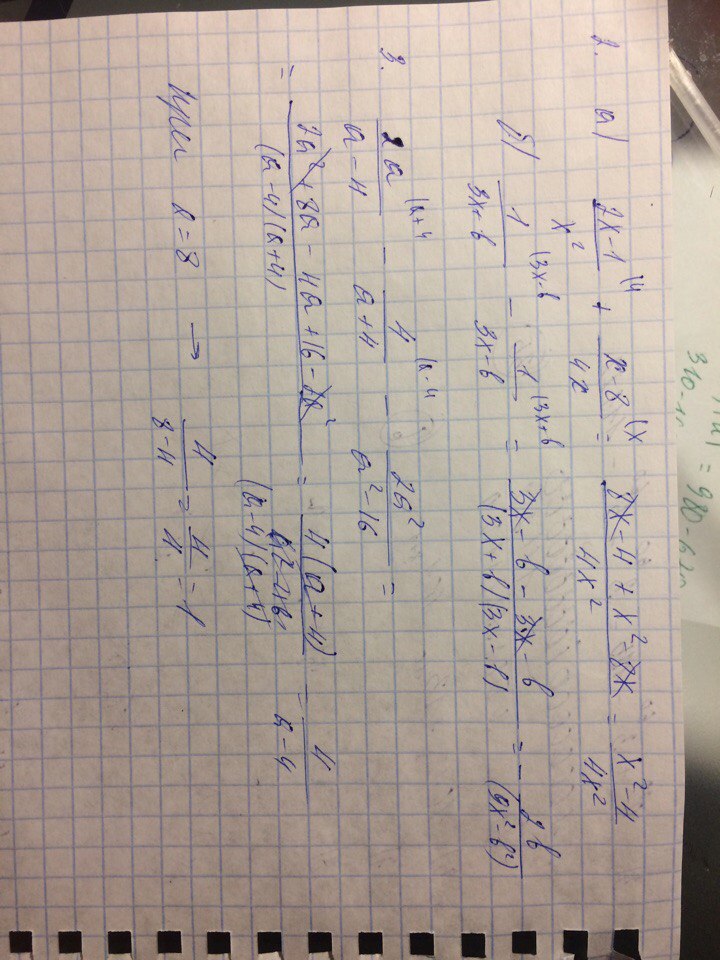 2. а) (2x-1)/x² |4 + (x-8)/4x |x = (8x-4+x²-8x)/4x² = (x²-4)/4x²
б) 1/(3x+b) |3x-b - 1/(3x-b) |3x+b = (3x-b-3x-b)/((3x+b)(3x-b)) = - 2b/(9x²-b²)
3. 2a/(a-4) |a+4 - 4/(a+4) |a-4 - 2a²/(a²-16) =
= (2a²+8a-4a+16-2a²)/((a-4)(a+4)) = 4(a+4)/((a-4)(a+4)) = 4/(a-4)
при a=8 → 4/(8-4) = 4/4 = 1